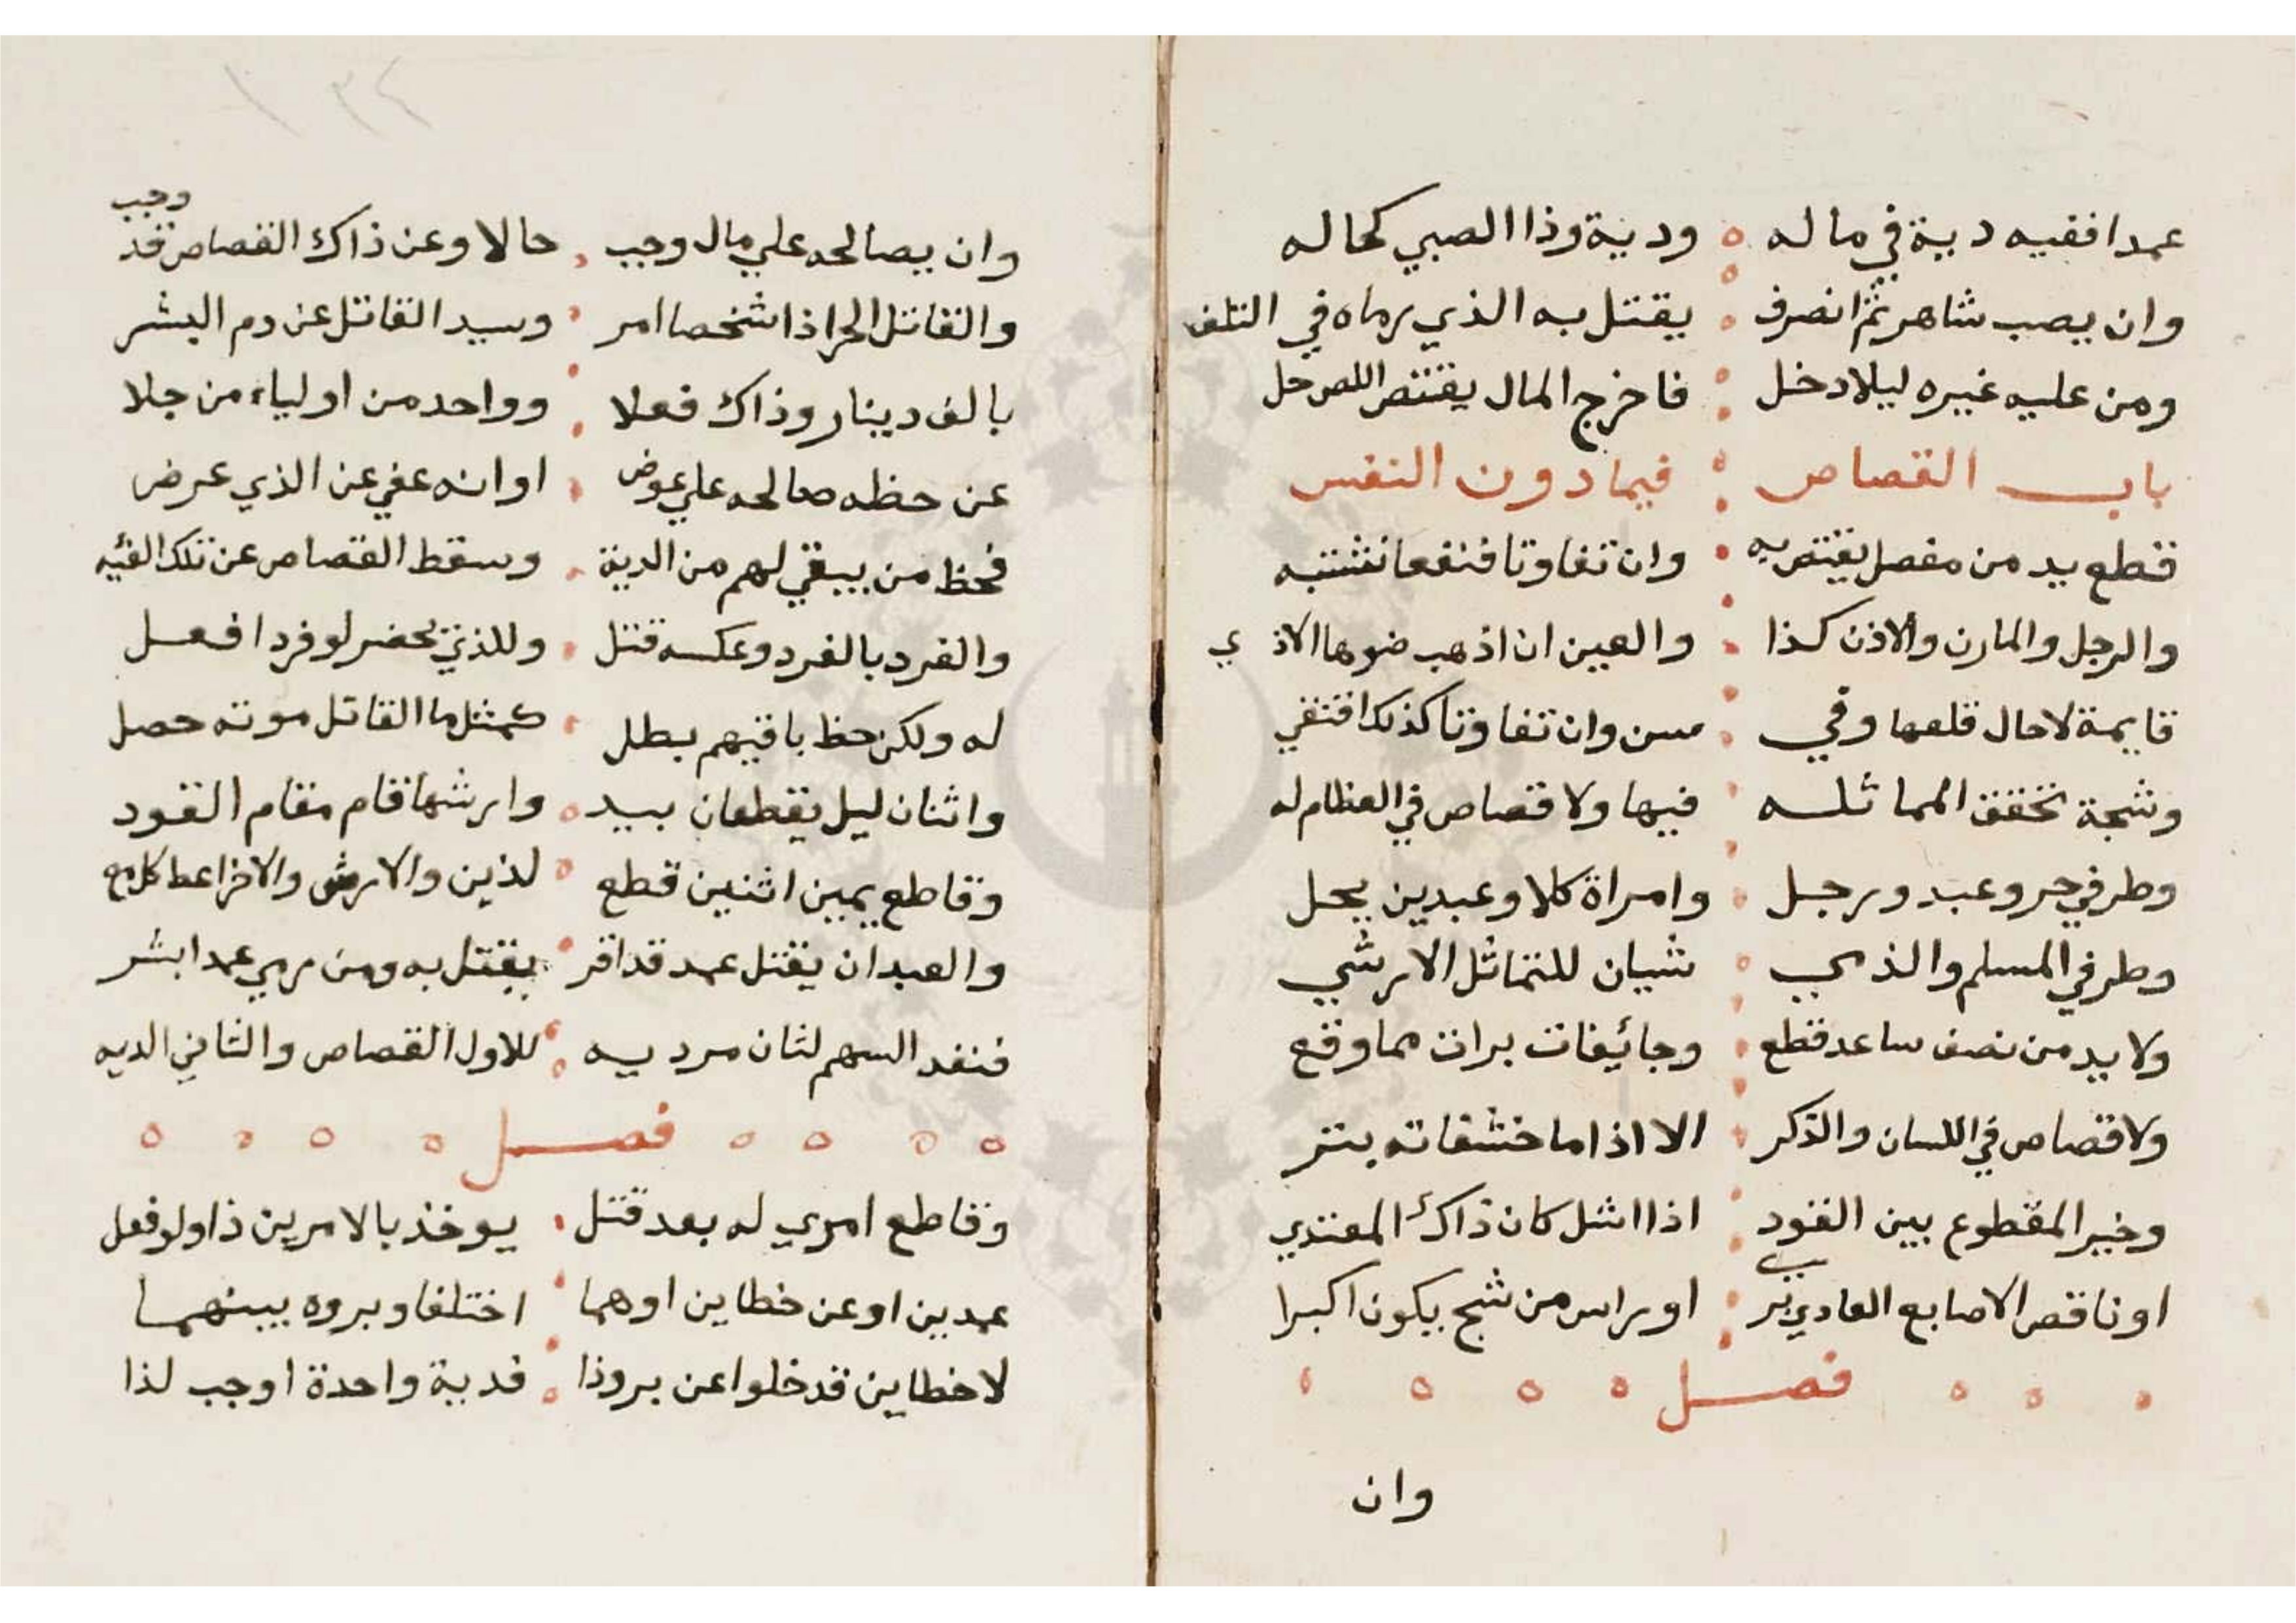 عمدا ففيه دية في ماله ودية وذا الصبي كحاله
وان يصب شاهر ثم انصرف يقتل به الذي رماه في التلف
ومن عليه غيره ليلا دخل فاخرج المال يقتنص اللص حل
باب القصاص فيما دون النفس
فقطع يد من مفصل يقتص به وان تفاوتا فنفعا تشتبه
والرجل والمارن والاذن كذا والعين ان اذهب ضوها الاذي
قايمة لا حال قلعها وفي سن وان تفاوتا كذلك اقتفي
وشجة تحقق المماثله فيها ولا قصاص في العظام له
وطرفي حر وعبد ورجل وامراة كلا وعبدين يحل
وطرفي المسلم والذمي شيان للتماثل الارشي
ولا يد من نصف ساعد قطع وجائيفات برات مما وقع
ولا قصاص في اللسان والذكر الا اذا ما حشفاته بتر
وخير المقطوع بين القود اذا اشل كان ذاك المعتدي
او ناقص الاصابع العادي او براس من شج يكون اكبرا
فصل
وان
١٣٤
وان يصالحه علي مال وجب حالا وعن ذاك القصاص قد وجب
والقاتل الحر اذا شخصا امر وسيد القاتل عن دم البشر
بالف دينار وذاك فعلا وواحد من اولياء من جلا
عن حظه صالحه علي عوض او انه عفي عن الذي عرض
فحظ من يبقي لهم من الدية وسقط القصاص عن تلك الفيه
والفرد بالفرد وعكسه قتل وللذي يحضر لو فردا فعل
له ولكن حظ باقيهم بطل كمثل ما القاتل موته حصل
واثنان ليل يقطعان بيد وارشها قام مقام القود
وقاطع يمين اثنين قطع لذين والارش والاخر اعط كل مع
والعبد ان يقتل عمد قد اقر يقتل به ومن رمي عمدا بشر
فنفد السهم لثان مرديه للاول القصاص والثاني الديه
فصل
وقاطع امري له بعد قتل يوخذ بالامرين ذا ولو فعل
عمدين او عن خطاين او هما اختلفا وبروه بينهما
لا خطاين قد خلوا عن بروذا فدية واحدة اوجب لذا